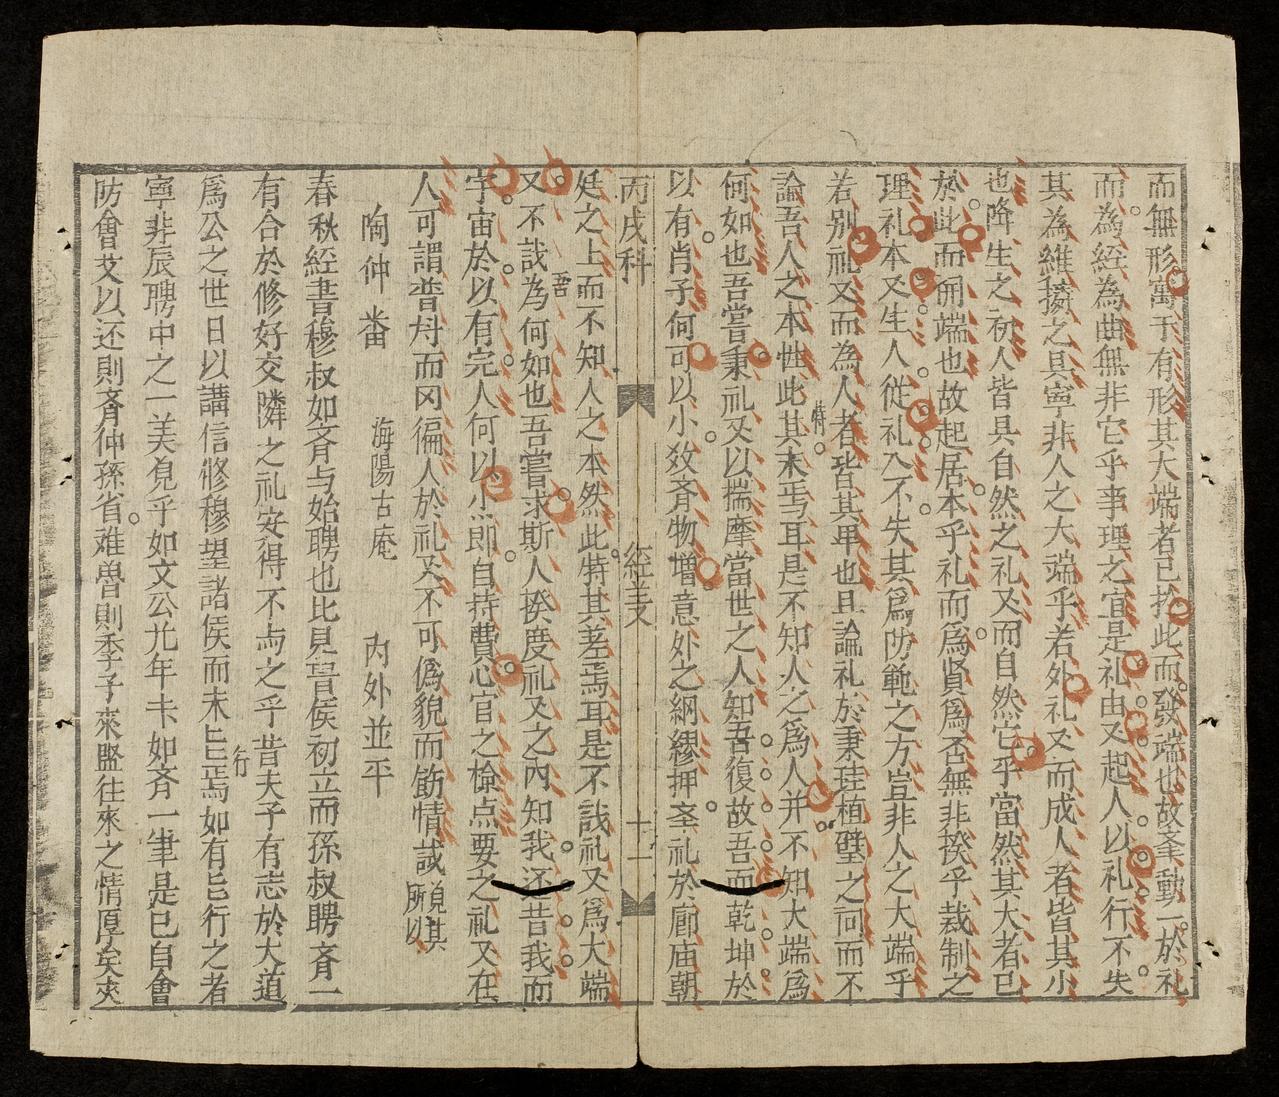 而無形寓于有形其大端者已於此而發端也故夆動一於礼
而為經為曲無非它乎事理之宜是礼由又起人以礼行不失
其為維擕之具寧非人之大端乎若外礼又而成人者皆其小
也降生之初人皆具自然之礼又而自然它乎當然其大者已
於此而開端也故起居本乎礼而爲賢爲否無非揆乎裁制之
理礼本又生人從礼入不失其爲防範之方豈非人之大端乎
若別礼又而為人者皆其甲也且論礼於秉珪植璧之何而不
特
論吾人之本性此其末焉耳是不知人之爲人并不知大端爲
何如也吾嘗秉礼又以揣摩當世之人知吾復故吾而乾坤於
以有肖子何可以小效斉物增意外之綢繆押夆礼於廊庙朝
丙戌科 經義 十一
廷之上而不知人之本然此特其差焉耳是不戠礼又爲大端
又不戠為何如也吾嘗求斯人揆度礼又之内知我还昔我而
吾
宇宙於以有完人何以小節自持費心官之檢点要之礼又在
人可謂普灱而冈徧人於礼又不可僞貌而飭情誠願其所以
陶仲畨 海陽古庵 内外並平
春秋経書穆叔如斉与始聘也比見晋侯初立而孫叔聘斉一
有合於修好交隣之礼安得不与之乎昔夫子有志於大道
爲公之世日以講信修穆望諸侯而未旨焉如有旨行之者
行
寧非辰聘中之一美覓乎如文公元年夫如斉一筆是已自會
防會艾以还則斉仲孫省难魯則季子來盟往來之情厚矣夾